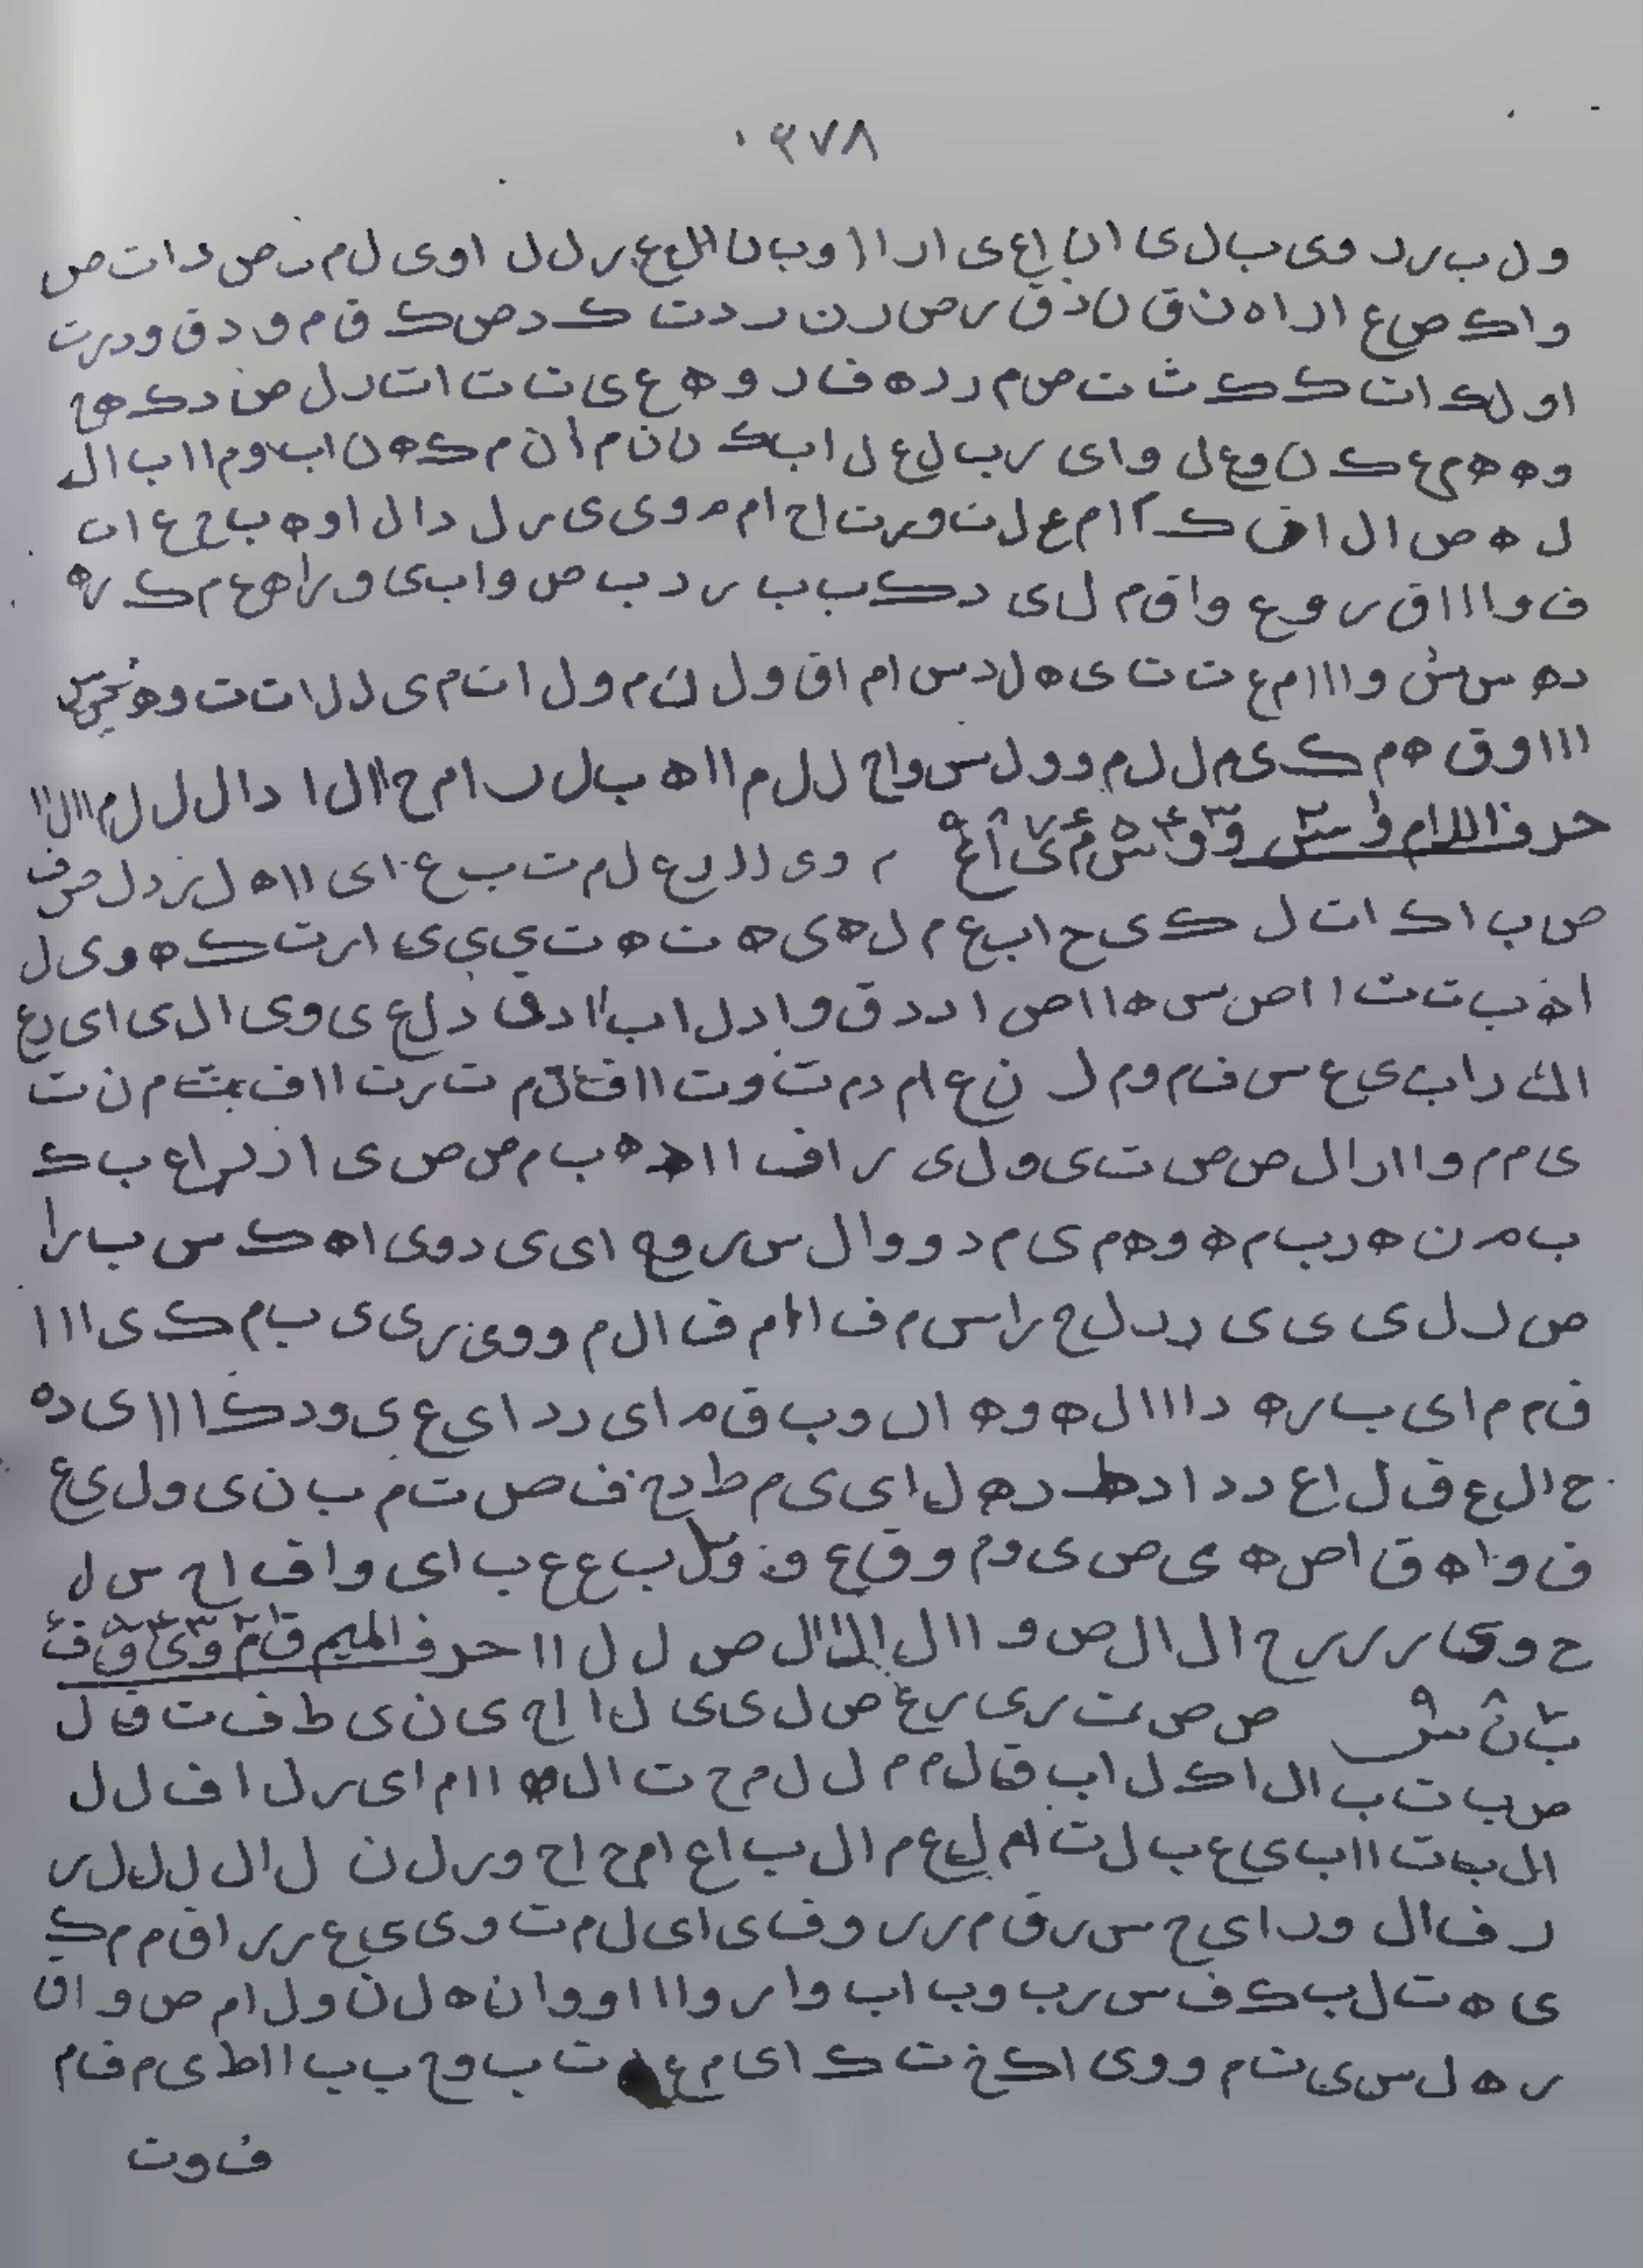 ٩٧٨
و ل ب ر د و ى ب ل ى ا ن ا ع ى ا ر ا ا و ب ن ا ل ع ر ل ل ا و ى ل م ر ص د ا ت ص
و ا ك ص ع ا ر ا ه ن ق ن ذ ق ر ص ر ن ر د ت ك د ص ك ق م و د ق و د ر ت
ا و ل ك ا ت ك ك ث ت ص م ر د ه ف ر و ه ع ى ت ت ا ت ر ل ض د ك ه ح
و ه ه م ع ك ن و ع ل و ا ى ر ب ل ع ل ا ب ك ن ن م ا ن م ك ه ن ا ب و م ا ا ب ا ل
ل ه ص ا ل ا ف ك ا م ع ل ت و ر ت ا ح ا م م و ى ى ر ل د ا ل ا و ه ب ح ع ا ب
ف و ا ا ا ق ر و ع و ا ق م ل ى د ك ب ب ر د ب ص و ا ب ى و ر ا ه ع م ك ر ه
د ه س ش و ا ا ا م ع ت ت ى ه ل د س ا م ا ق و ل ن م و ل ا ت م ى ل ل ا ت ت و ه
ا ا ا و ق ه م ك ى م ل ل م و و ل س و ا ح ل ل م ا ا ه ب ل ر ا م ح ا ل ا د ا ل ل ل م
حرف اللام و س و و ش م ى ا غ م و ى ل ل ر ع ل م ت ب ع ا ى ا ا ه ل ز د ل ص ر ف
ص ب ا ك ا ت ل ك ى ح ا ب ع م ل ه ى ه ت ه ت ي ي ى ا ر ت ك ه و ى ل
ا خ ب ت ث ا ا ص س ه ا ا ص ا د د ق و ا د ل ا ب ا د ق د ل ع ى و ى ا ل ى ا ى د ع
د ا ب ى ع س ف م و م ل ن ع ا م د م ت و ت ا ا ق ل م ت ر ت ا ا ف ب ت م ن ت
ى م م و ا ا ر ا ل ص ص ت ى و ل ى ر ا ف ا ا ه ب م ص ص ى ا ز ل ر ا ع ب ك
ب م ن ه ر ب م ه و ه م ى م د و و ا ل س ر و ع ا ى ى د و ى ا ه ك س ب ر ا
ص ل ل ى ى ى ر د ل ح ر ا س م ف ا م ق ا ل م و و ى ر ى ى ب م ك ى ا ا ا
ف م م ا ى ب ر ه د ا ا ا ل ه و ه ا ل و ب ق م ا ى ر د ا ى ع ى و د ك ا ا ا ى د ه
ح ا ل ع ق ل ا ع د د ا د ط ر ه ل ا ى ى م ط د ح ف ص ت م ب ن ى و ل ى ع
ف و ا ه ق ا ص ه ى ص ى و م و ق ع و ب ع ع ب ا ى و ا ف ا ح س ل
ح و ى ا ر ر ر ح ا ل ا ل ص و ا ا ل ا ل ص ل ل ا ا حرف الميم ق م و ى ق ف
ب ن س ص ص ت ر ى ر غ ص ل ى ى ل ا ا ح ى ن ى ط ف ت ق ل
ص ب ت ب ا ل ا ك ل ا ب ق ل م م ل ل م ح ت ا ل ه ا ا م ا ى ر ل ا ف ل ل
ا ل ب ت ا ا ب ى ع ب ل ت ا م ل ع م ا ل ب ا ع ا م ح ا ح و ر ل ن ل ا ل ل ل ل ر
ر ف ا ل و د ا ى ح س ر ق م ر ر و ف ى ا ى ل م ت و ى ى ع ر ر ا ق م م ك
ى ه ت ل ب ك ف س ر ب و ب ا ب و ا ر و ا ا ا و و ا ن ه ل ن و ل ا م ص و ا ق
ر ه ل س ى ت م و و ى ا ك خ ت ك ا ى م ع ت ب و ح ب ب ا ا ط ى م ف م
ف و ت